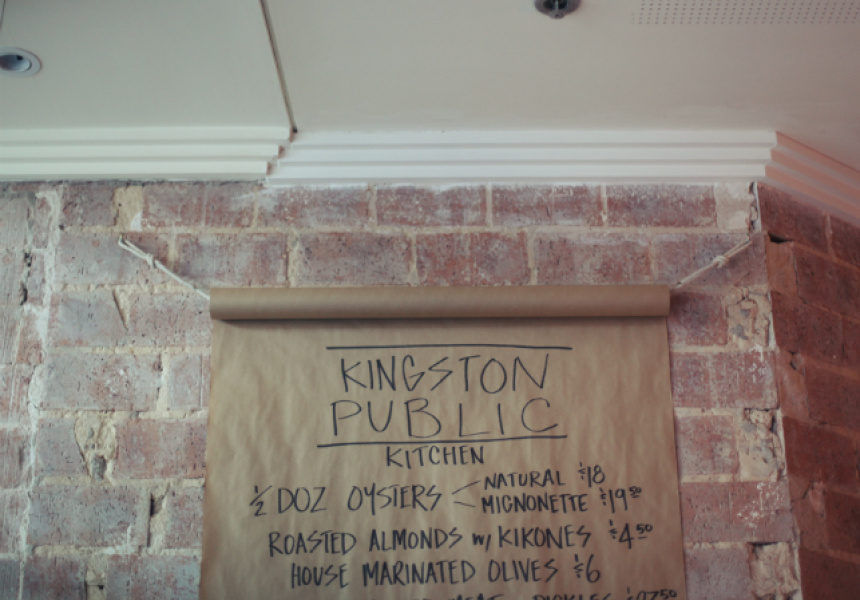 KINGSTON
PUBLIC
KITCHEN
½ DOZ OYSTERS NATURAL $18
MIGNONETTE $19⁵⁰
ROASTED ALMONDS w/ KIKONES $4⁵⁰
HOUSE MARINATED OLIVES $6
PICKLES